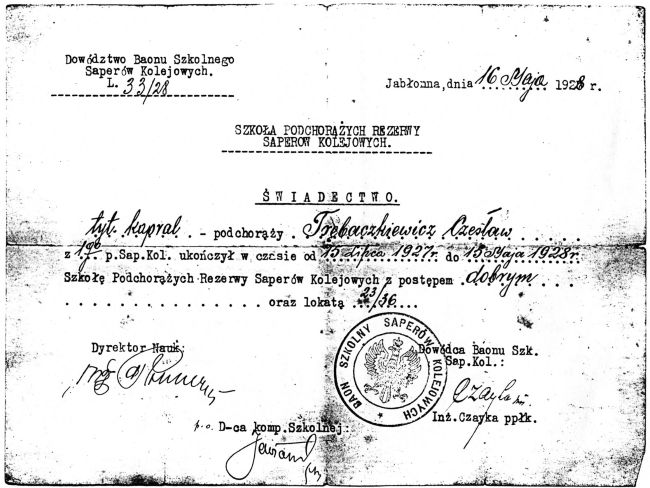 Dowództwo Baonu Szkolnego
Saperów Kolejowych.
L. 33/28
Jabłonna, dnia 16 Maja 1928 r.
SZKOŁA PODCHORĄŻYCH REZERWY
SAPEROW KOLEJOWYCH.
ŚWIADECTWO.
tyt. kapral - podchorąży Trębaczkiewicz Czesław
z 1go p.Sap.Kol. ukończył w czasie od 15 Lipca 1927r. do 15 Maja 1928r.
Szkołę Podchorążych Rezerwy Saperów Kolejowych z postępem dobrym
oraz lokatą 23/36
Dyrektor Nauk:
BAON SZKOLNY SAPERÓW KOLEJOWYCH
Dowódca Baonu Szk.
Sap.Kol.:
Inż.Czayka ppłk.
p.o. D-ca komp.Szkolnej: